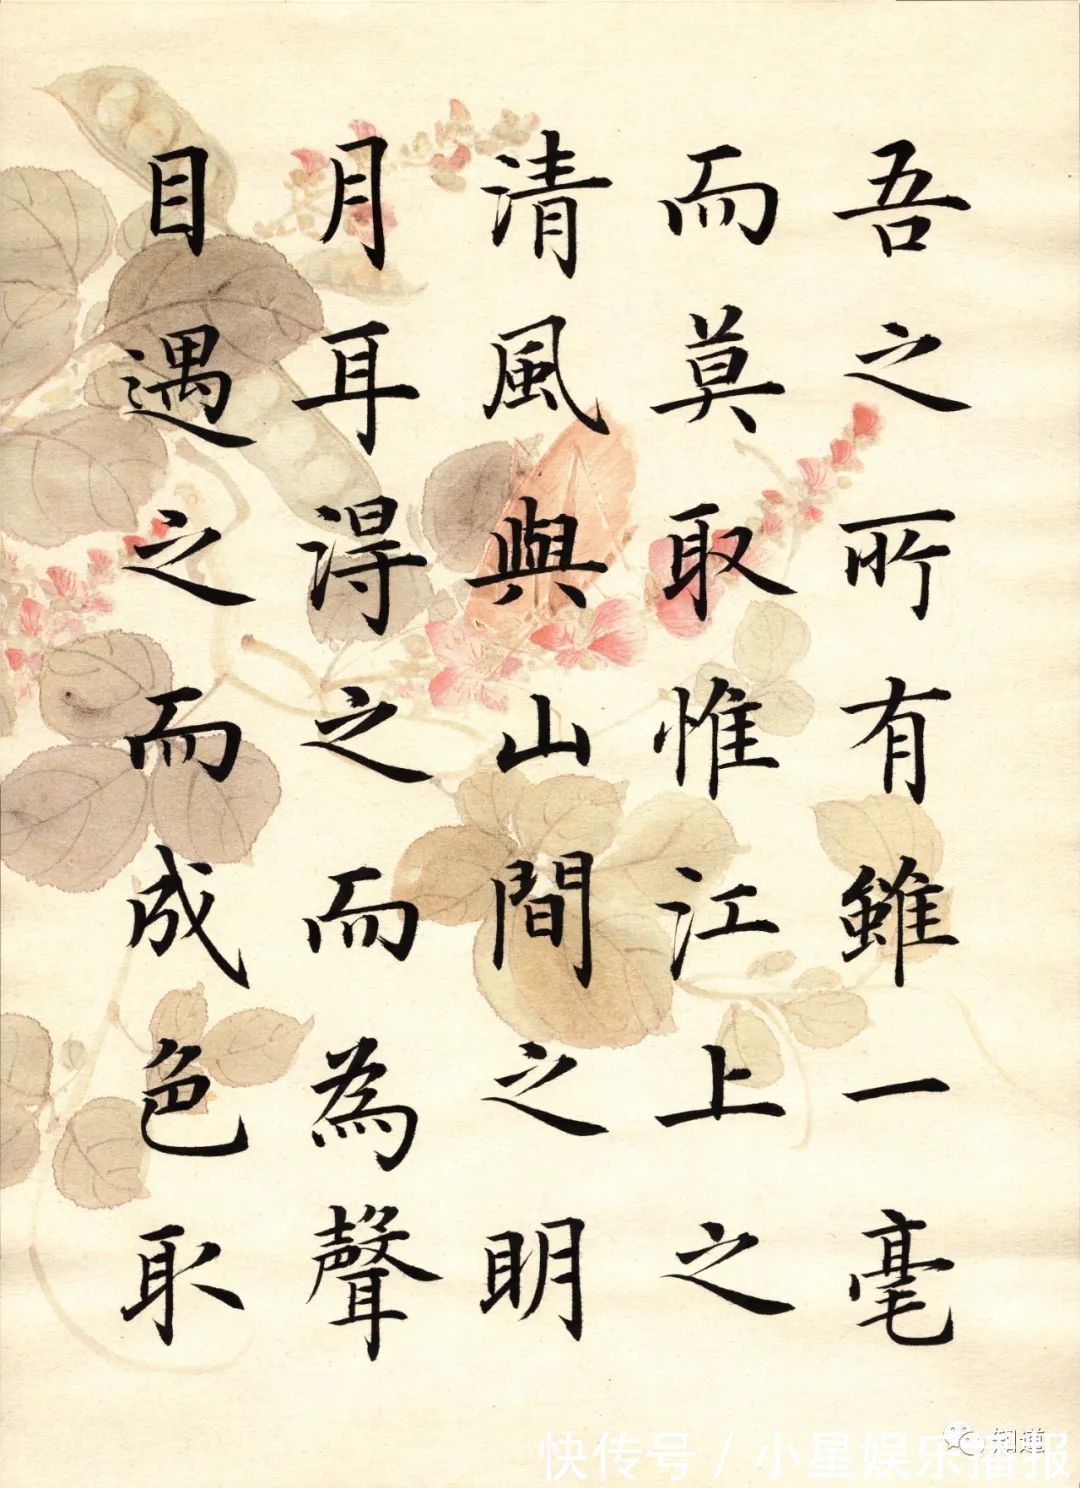 吾之所有雖一毫
而莫取惟江上之
清風與山間之明
月耳得之而為聲
目遇之而成色取
快传号／小星娱乐播报